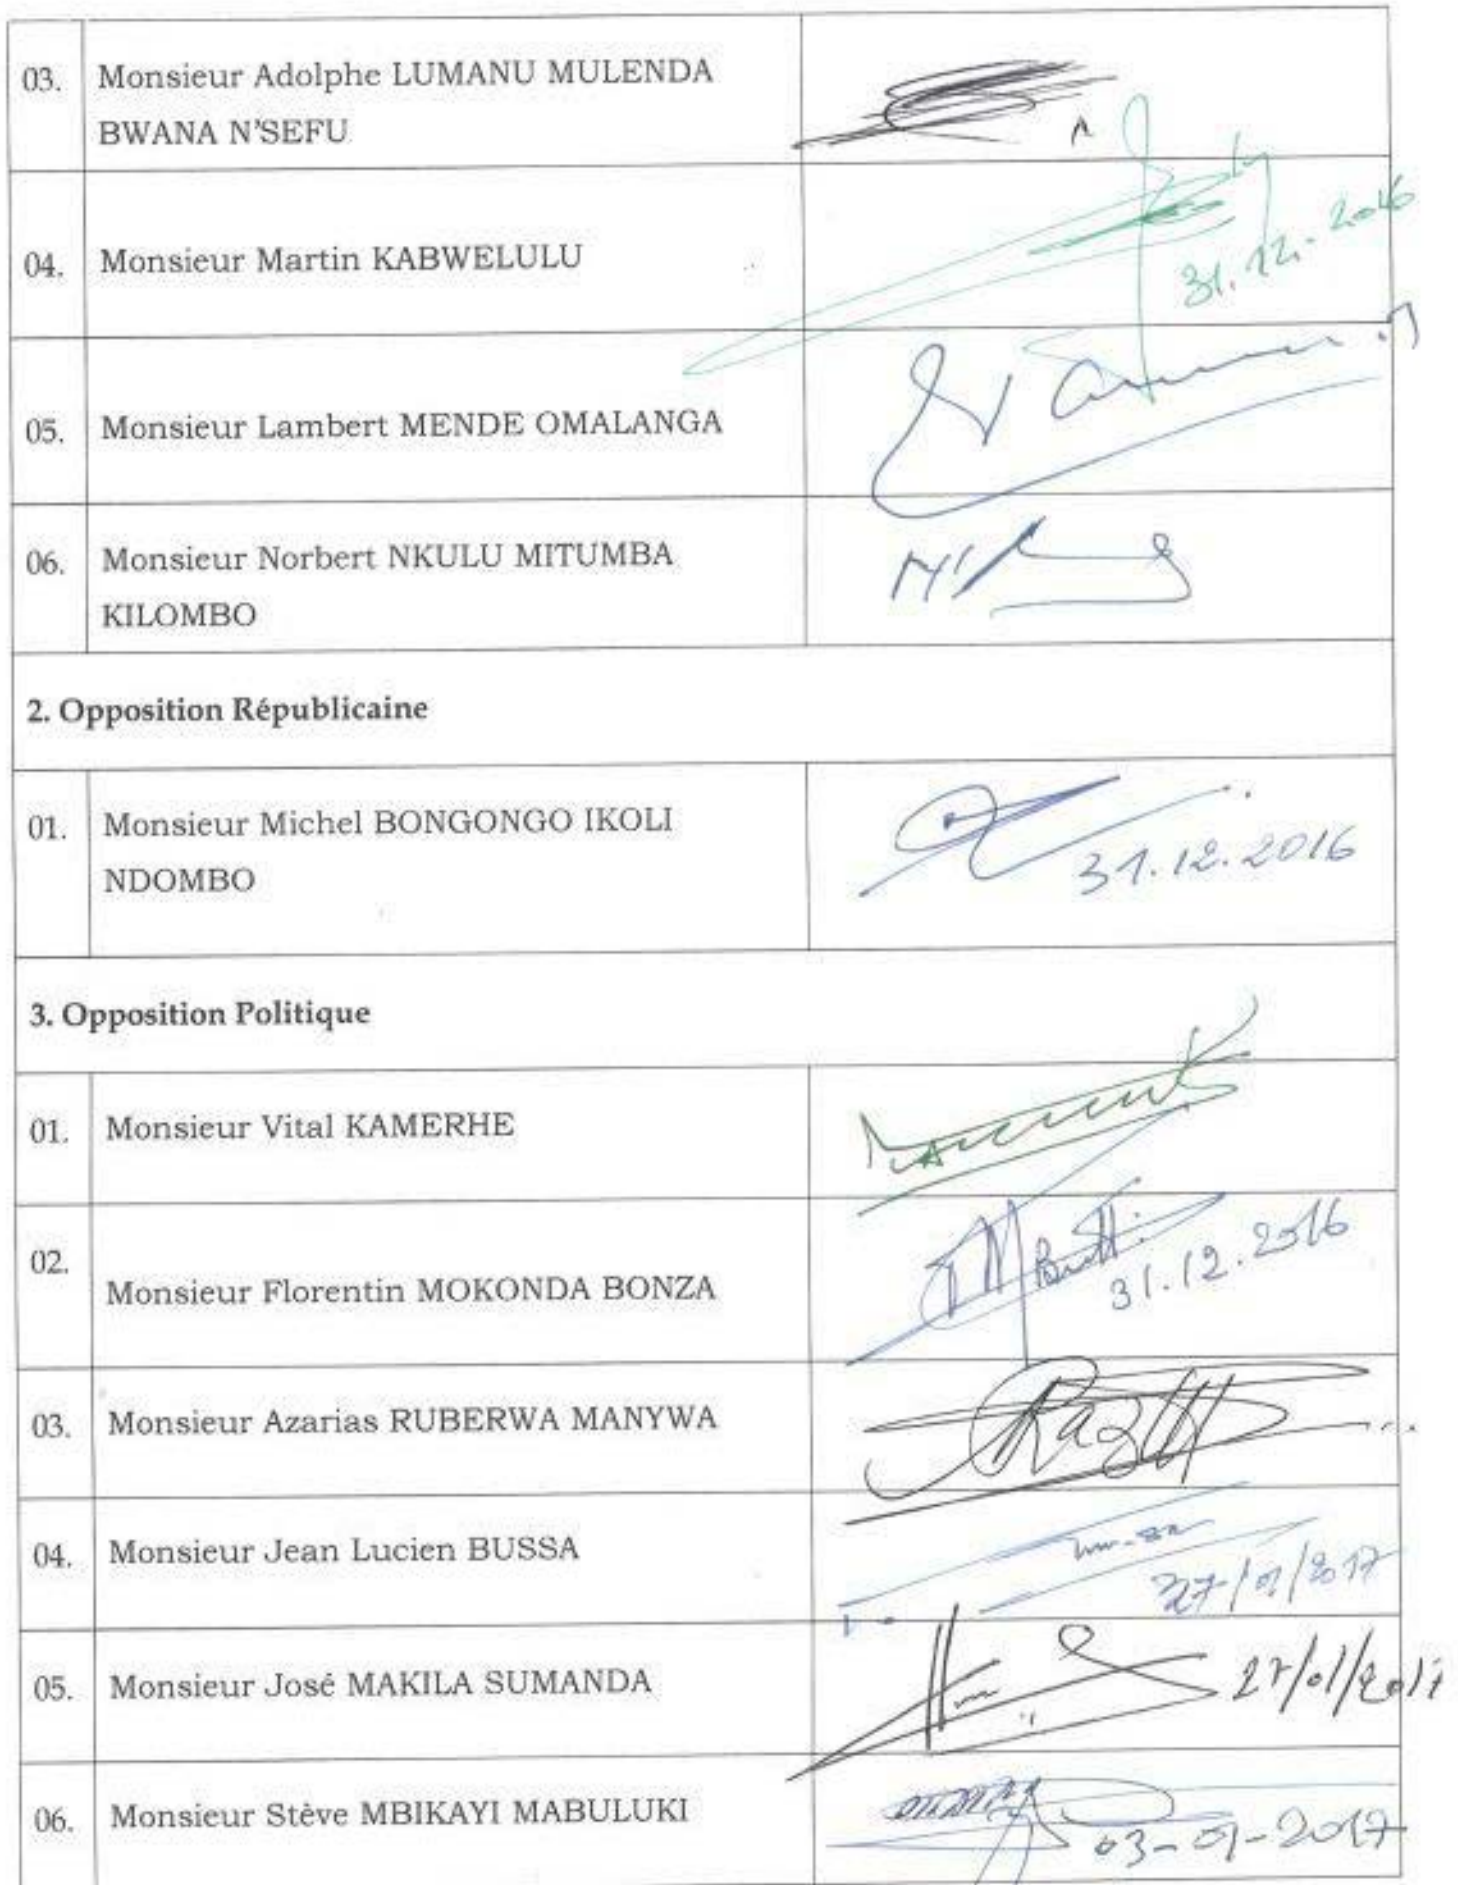 03. Monsieur Adolphe LUMANU MULENDA
BWANA N'SEFU
04. Monsieur Martin KABWELULU
31.12.2016
05. Monsieur Lambert MENDE OMALANGA
06. Monsieur Norbert NKULU MITUMBA
KILOMBO
2. Opposition Républicaine
01. Monsieur Michel BONGONGO IKOLI
NDOMBO
31.12.2016
3. Opposition Politique
01. Monsieur Vital KAMERHE
02.
Monsieur Florentin MOKONDA BONZA
31.12.2016
03. Monsieur Azarias RUBERWA MANYWA
04. Monsieur Jean Lucien BUSSA
27/01/2017
05. Monsieur José MAKILA SUMANDA
27/01/2017
06. Monsieur Stève MBIKAYI MABULUKI
03-01-2017